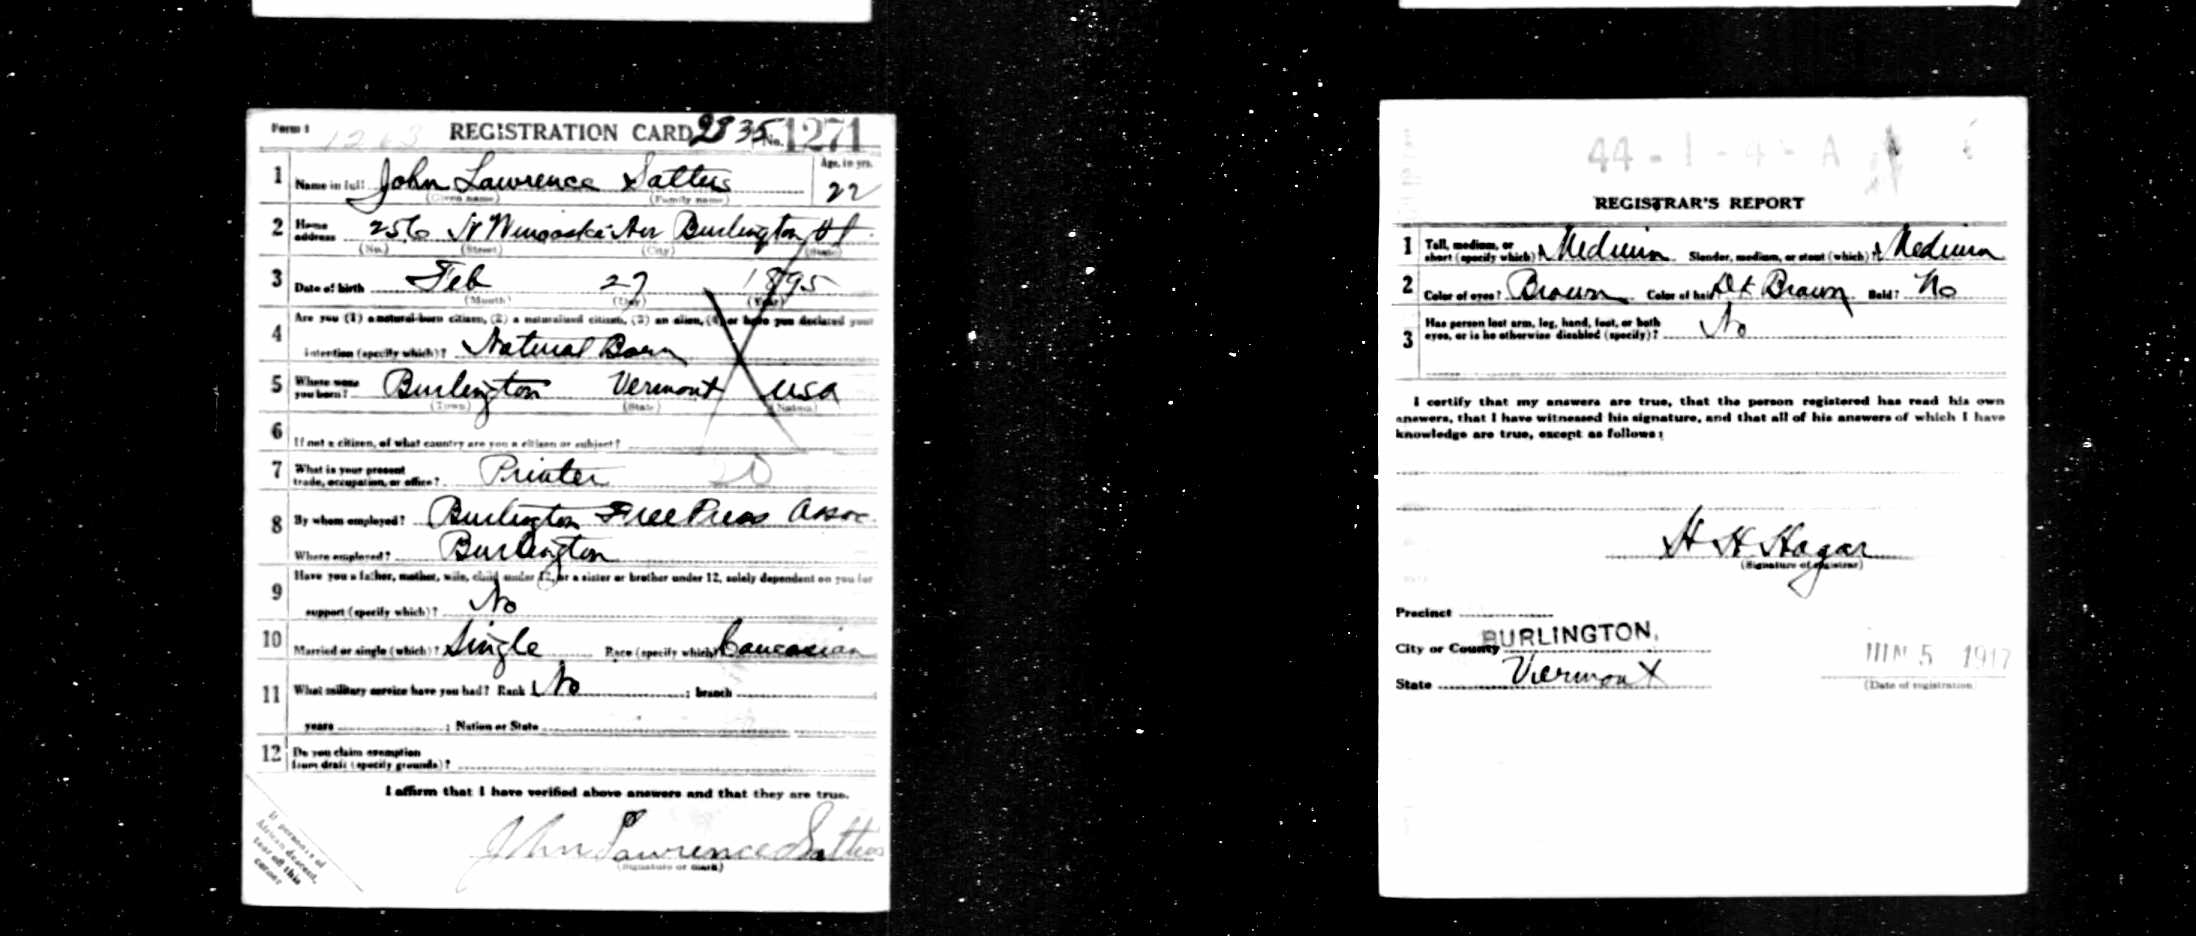 Form 1 1263 REGISTRATION CARD 2835 No. 1271
1 Name in full John Lawrence Satters Age, in yrs. 22
(Given name) (Family name)
2 Home address 256 N Winooski Ave Burlington Vt
(No.) (Street) (City) (State)
3 Date of birth Feb 27 1895
(Month) (Day) (Year)
4 Are you (1) a natural-born citizen, (2) a naturalized citizen, (3) an alien, (4) or have you declared your
intention (specify which)? Natural Born
5 Where were you born? Burlington Vermont USA
(Town) (State) (Nation)
6 If not a citizen, of what country are you a citizen or subject?
7 What is your present trade, occupation, or office? Printer 20
8 By whom employed? Burlington Free Press Assoc
Where employed? Burlington
9 Have you a father, mother, wife, child under 12, or a sister or brother under 12, solely dependent on you for
support (specify which)? No
10 Married or single (which)? Single Race (specify which)? Caucasian
11 What military service have you had? Rank No ; branch
years ; Nation or State
12 Do you claim exemption from draft (specify grounds)?
I affirm that I have verified above answers and that they are true.
John Lawrence Satters
(Signature or mark)
If person is of
African descent,
tear off this
corner
44-1-4-A
REGISTRAR'S REPORT
1 Tall, medium, or short (specify which)? Medium Slender, medium, or stout (which)? Medium
2 Color of eyes? Brown Color of hair? Dk Brown Bald? No
3 Has person lost arm, leg, hand, foot, or both eyes, or is he otherwise disabled (specify)? No
I certify that my answers are true, that the person registered has read his own
answers, that I have witnessed his signature, and that all of his answers of which I have
knowledge are true, except as follows:
H H Hagar
(Signature of registrar)
Precinct
City or County BURLINGTON,
State Vermont JUN 5 1917
(Date of registration)